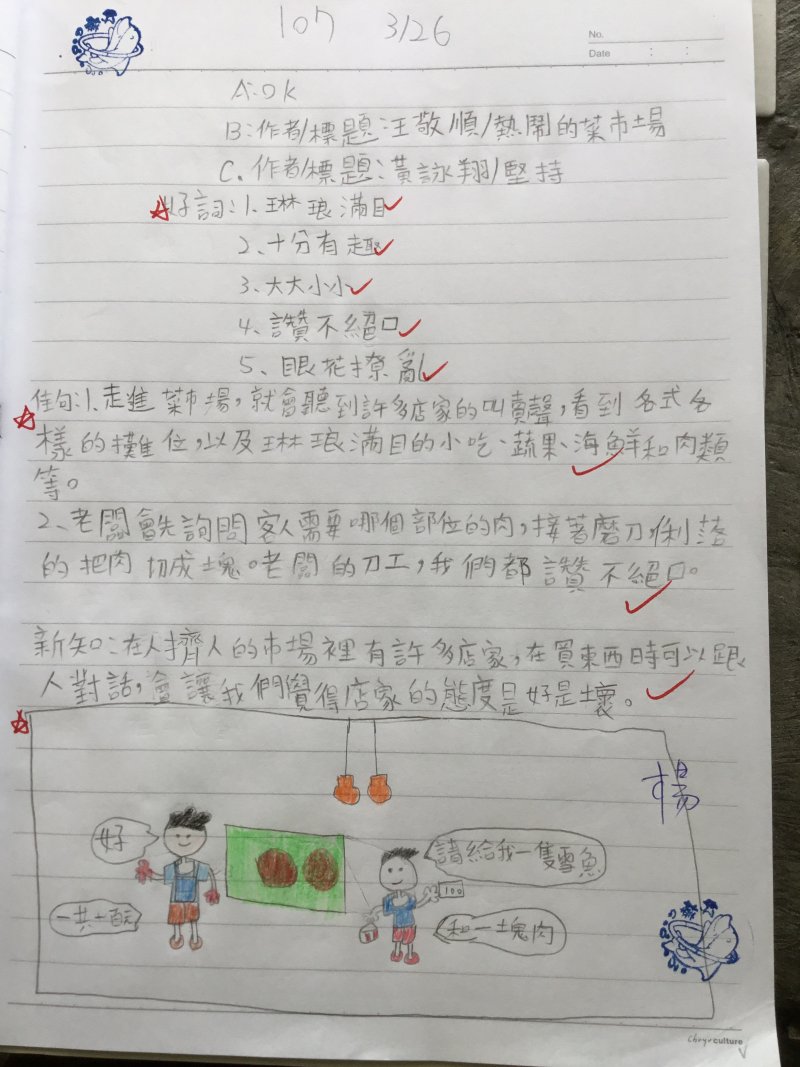 107 3/26
No.
Date : :
A:OK
B:作者/標題:王敬順/熱鬧的菜市場
C.作者/標題:黃詠翔/堅持
好詞:1.琳琅滿目
2、十分有趣
3、大大小小
4、讚不絕口
5、眼花撩亂
佳句:1.走進菜市場,就會聽到許多店家的叫賣聲,看到各式各
樣的攤位,以及琳琅滿目的小吃、蔬果、海鮮和肉類
等。
2、老闆會先詢問客人需要哪個部位的肉,接著磨刀,俐落
的把肉切成塊。老闆的刀工,我們都讚不絕口。
新知:在人擠人的市場裡有許多店家,在買東西時可以跟
人對話,會讓我們覺得店家的態度是好是壞。
楊
好
請給我一隻鱈魚
100
一共一百元
和一塊肉
culture